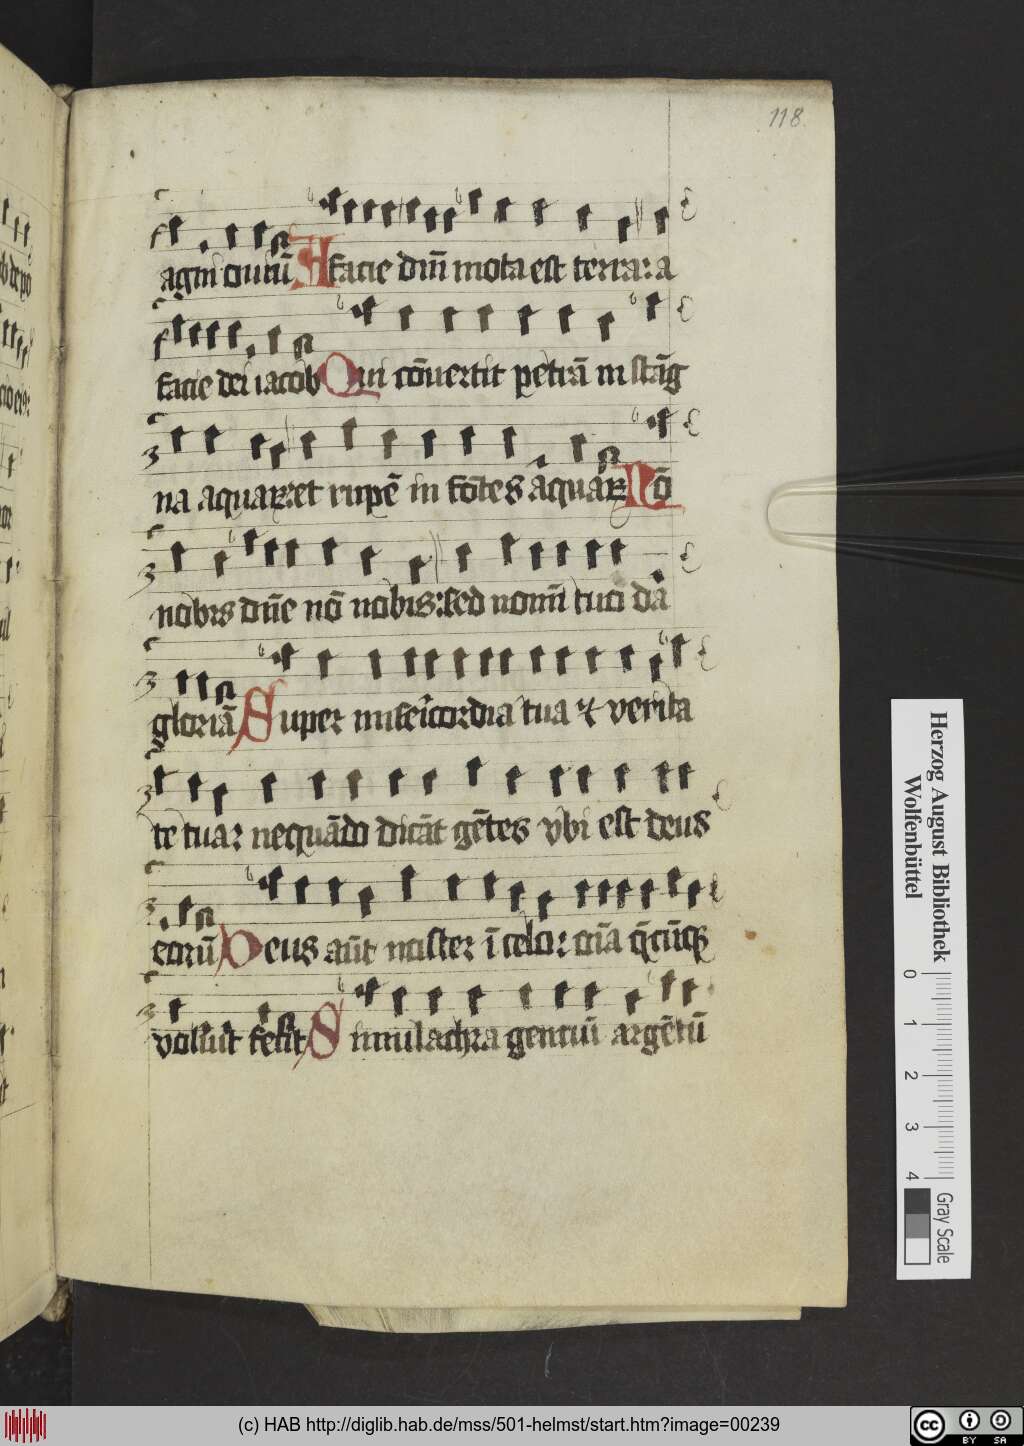 118
agni ouiū A facie dn̄i mota est terra: a
facie dei iacob Qui cōuertit petrā in stāg
na aquaꝝ: et rupē in fōtes āquaꝝ Nō
nobis dn̄e nō nobis: sed nomī tuo dā
gloriā Super misericordia tua ⁊ verita
te tua: nequādo dicāt gētes vbi est deus
eorū Deus aūt noster ī celo: oīa q̄cūqꝫ
voluit fecit Simulachra gentiū argētū
Herzog August Bibliothek
Wolfenbüttel
0 1 2 3 4
Gray Scale
(c) HAB http://diglib.hab.de/mss/501-helmst/start.htm?image=00239
cc BY SA